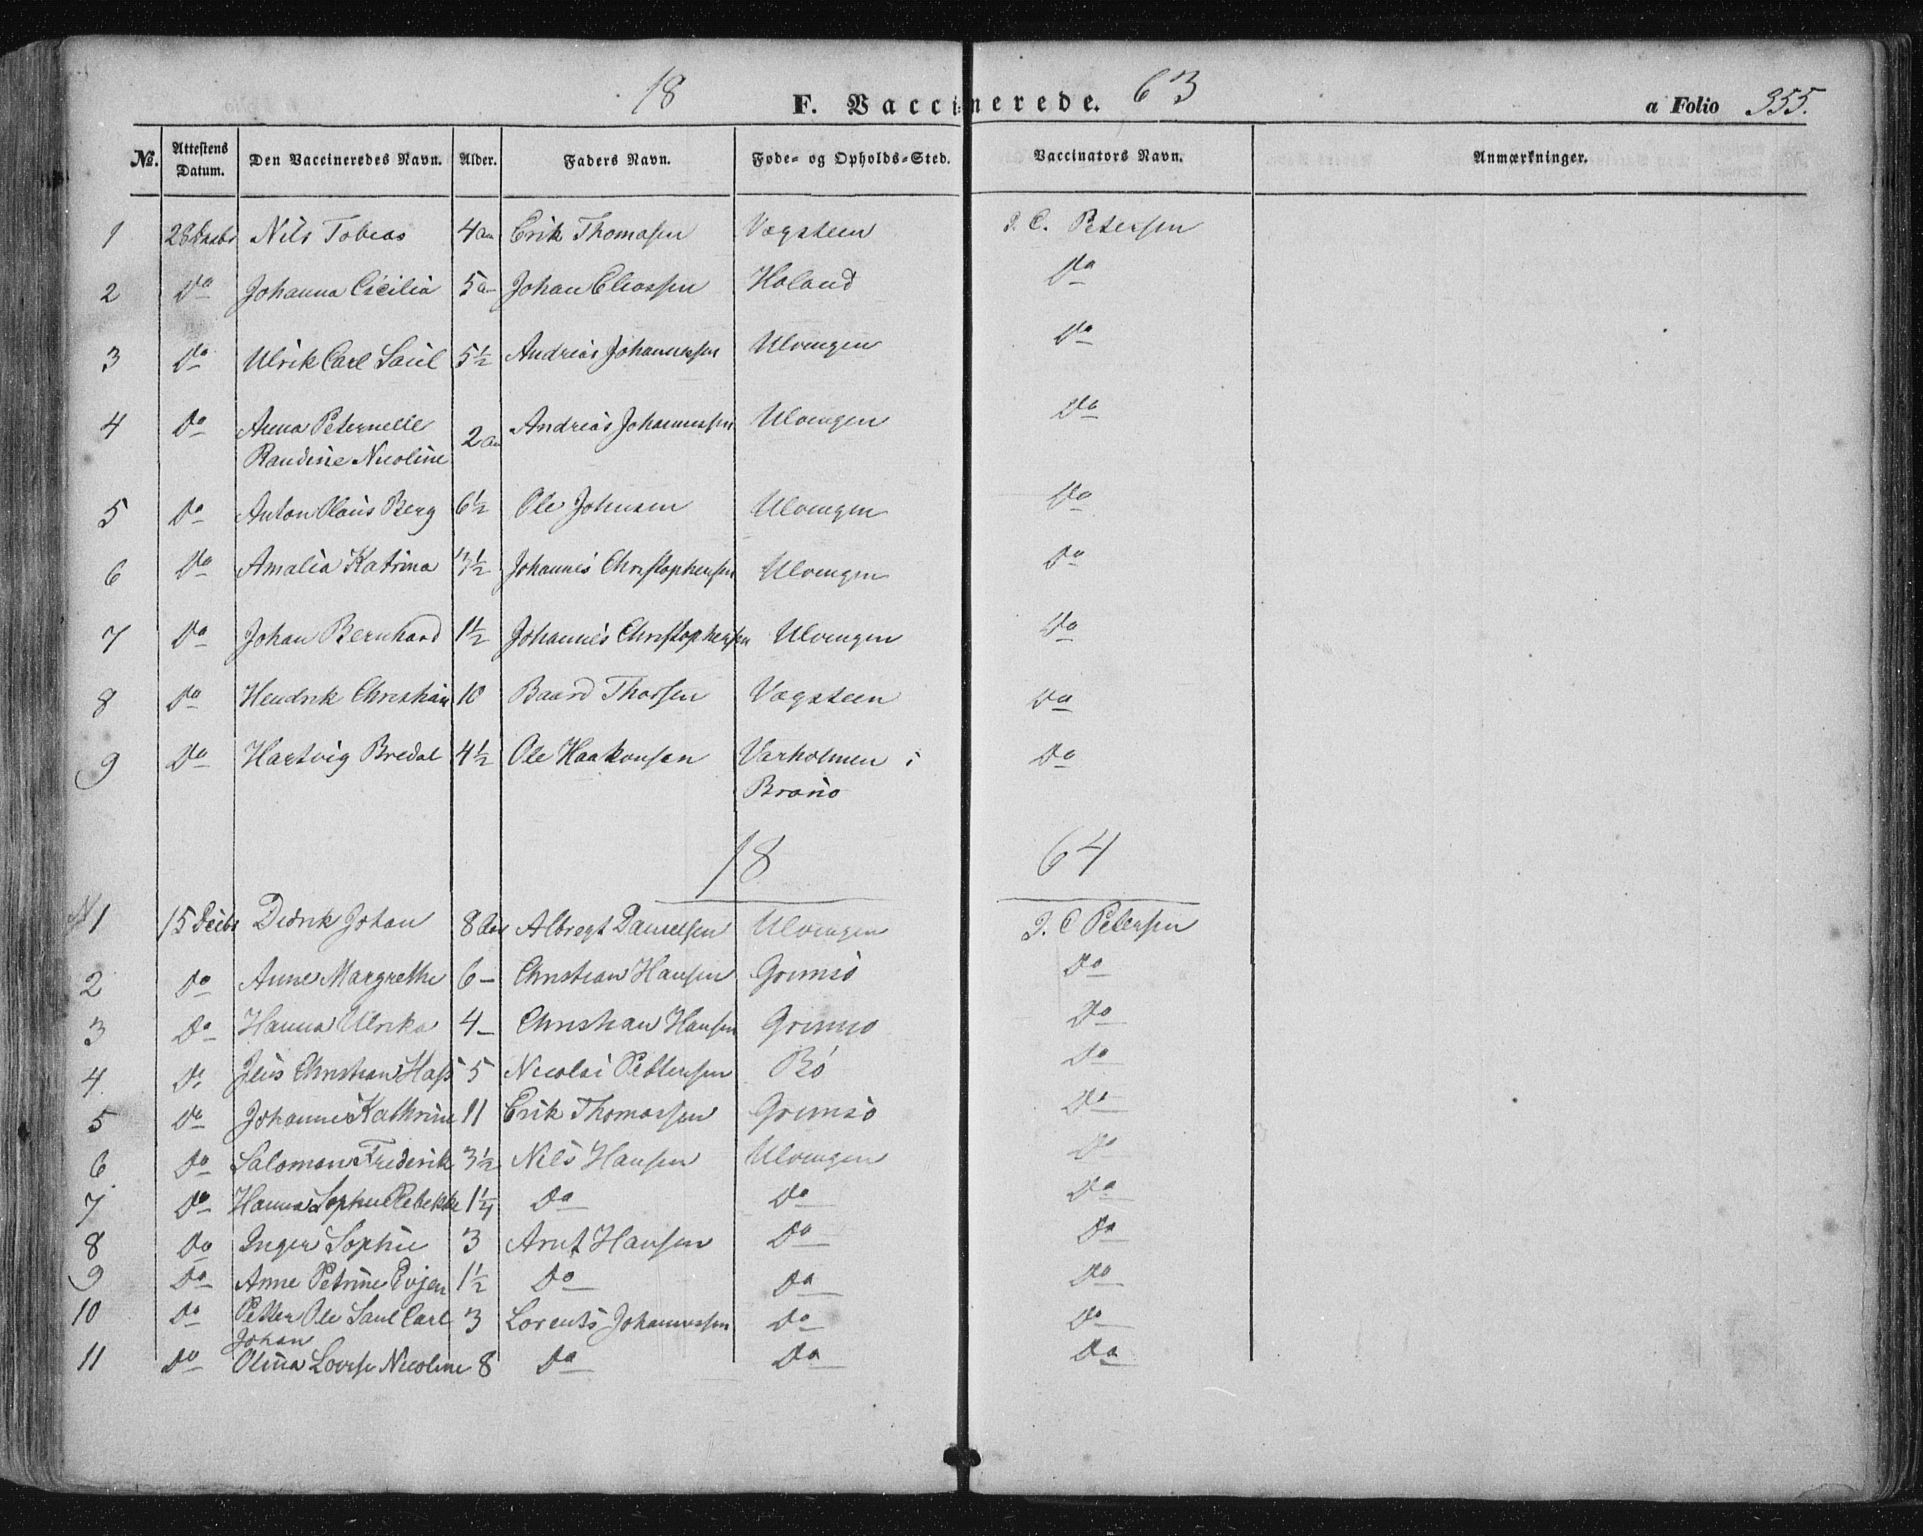 18 63
F. Vaccinerede.
a Folio 355.
No. Attestens Datum. Den Vaccineredes Navn. Alder. Faders Navn. Føde- og Opholds-Sted. Vaccinators Navn. Anmærkninger.
1 28 Nils Tobias 4 aar Erik Thomasen Vægsteen J. C. Petersen
2 Do Johanna Cicilia 5 a Johan Eliassen Holand Do
3 Do Ulrik Carl Saul 5½ Andreas Johannessen Ulvengen Do
4 Do Anna Peternelle 2 aar Andreas Johannessen Ulvengen Do
Randine Nicoline
5 Do Anton Olaus Berg 6½ Ole Johnsen Ulvengen Do
6 Do Amalia Katrina 3½ Johannes Christophersen Ulvengen Do
7 Do Johan Bernhard 1½ Johannes Christophersen Ulvengen Do
8 Do Hendrik Christian 10 Baard Thorsen Vægsteen Do
9 Do Hartvig Bredal 4½ Ole Haakonsen Varholmen i Do
Brønø
18 64
N 1 15 Decbr Didrik Johan 8 Aar Albregt Danielsen Ulvengen J. C Petersen
2 Do Anne Margrethe 6 – Christian Hansen Grimsø Do
3 Do Hanna Ulrika 4 – Christian Hansen Grimsø Do
4 Do Jens Christian Hass 5 Nicolai Pettersen Bø Do
5 Do Johanne Kathrine 11 Erik Thomassen Grimsø Do
6 Do Salomon Frederik 3½ Nils Hansen Ulvengen Do
7 Do Hanna Sophie Rebekke 1¼ Do Do Do
8 Do Inger Sophie 3 Arnt Hansen Do Do
9 Do Anne Petrine Evjen 1½ Do Do Do
10 Do Petter Ole Saul Carl 3 Lorents Johannessen Do Do
Johan
11 Do Olina Lovise Nicoline 8 Do Do Do